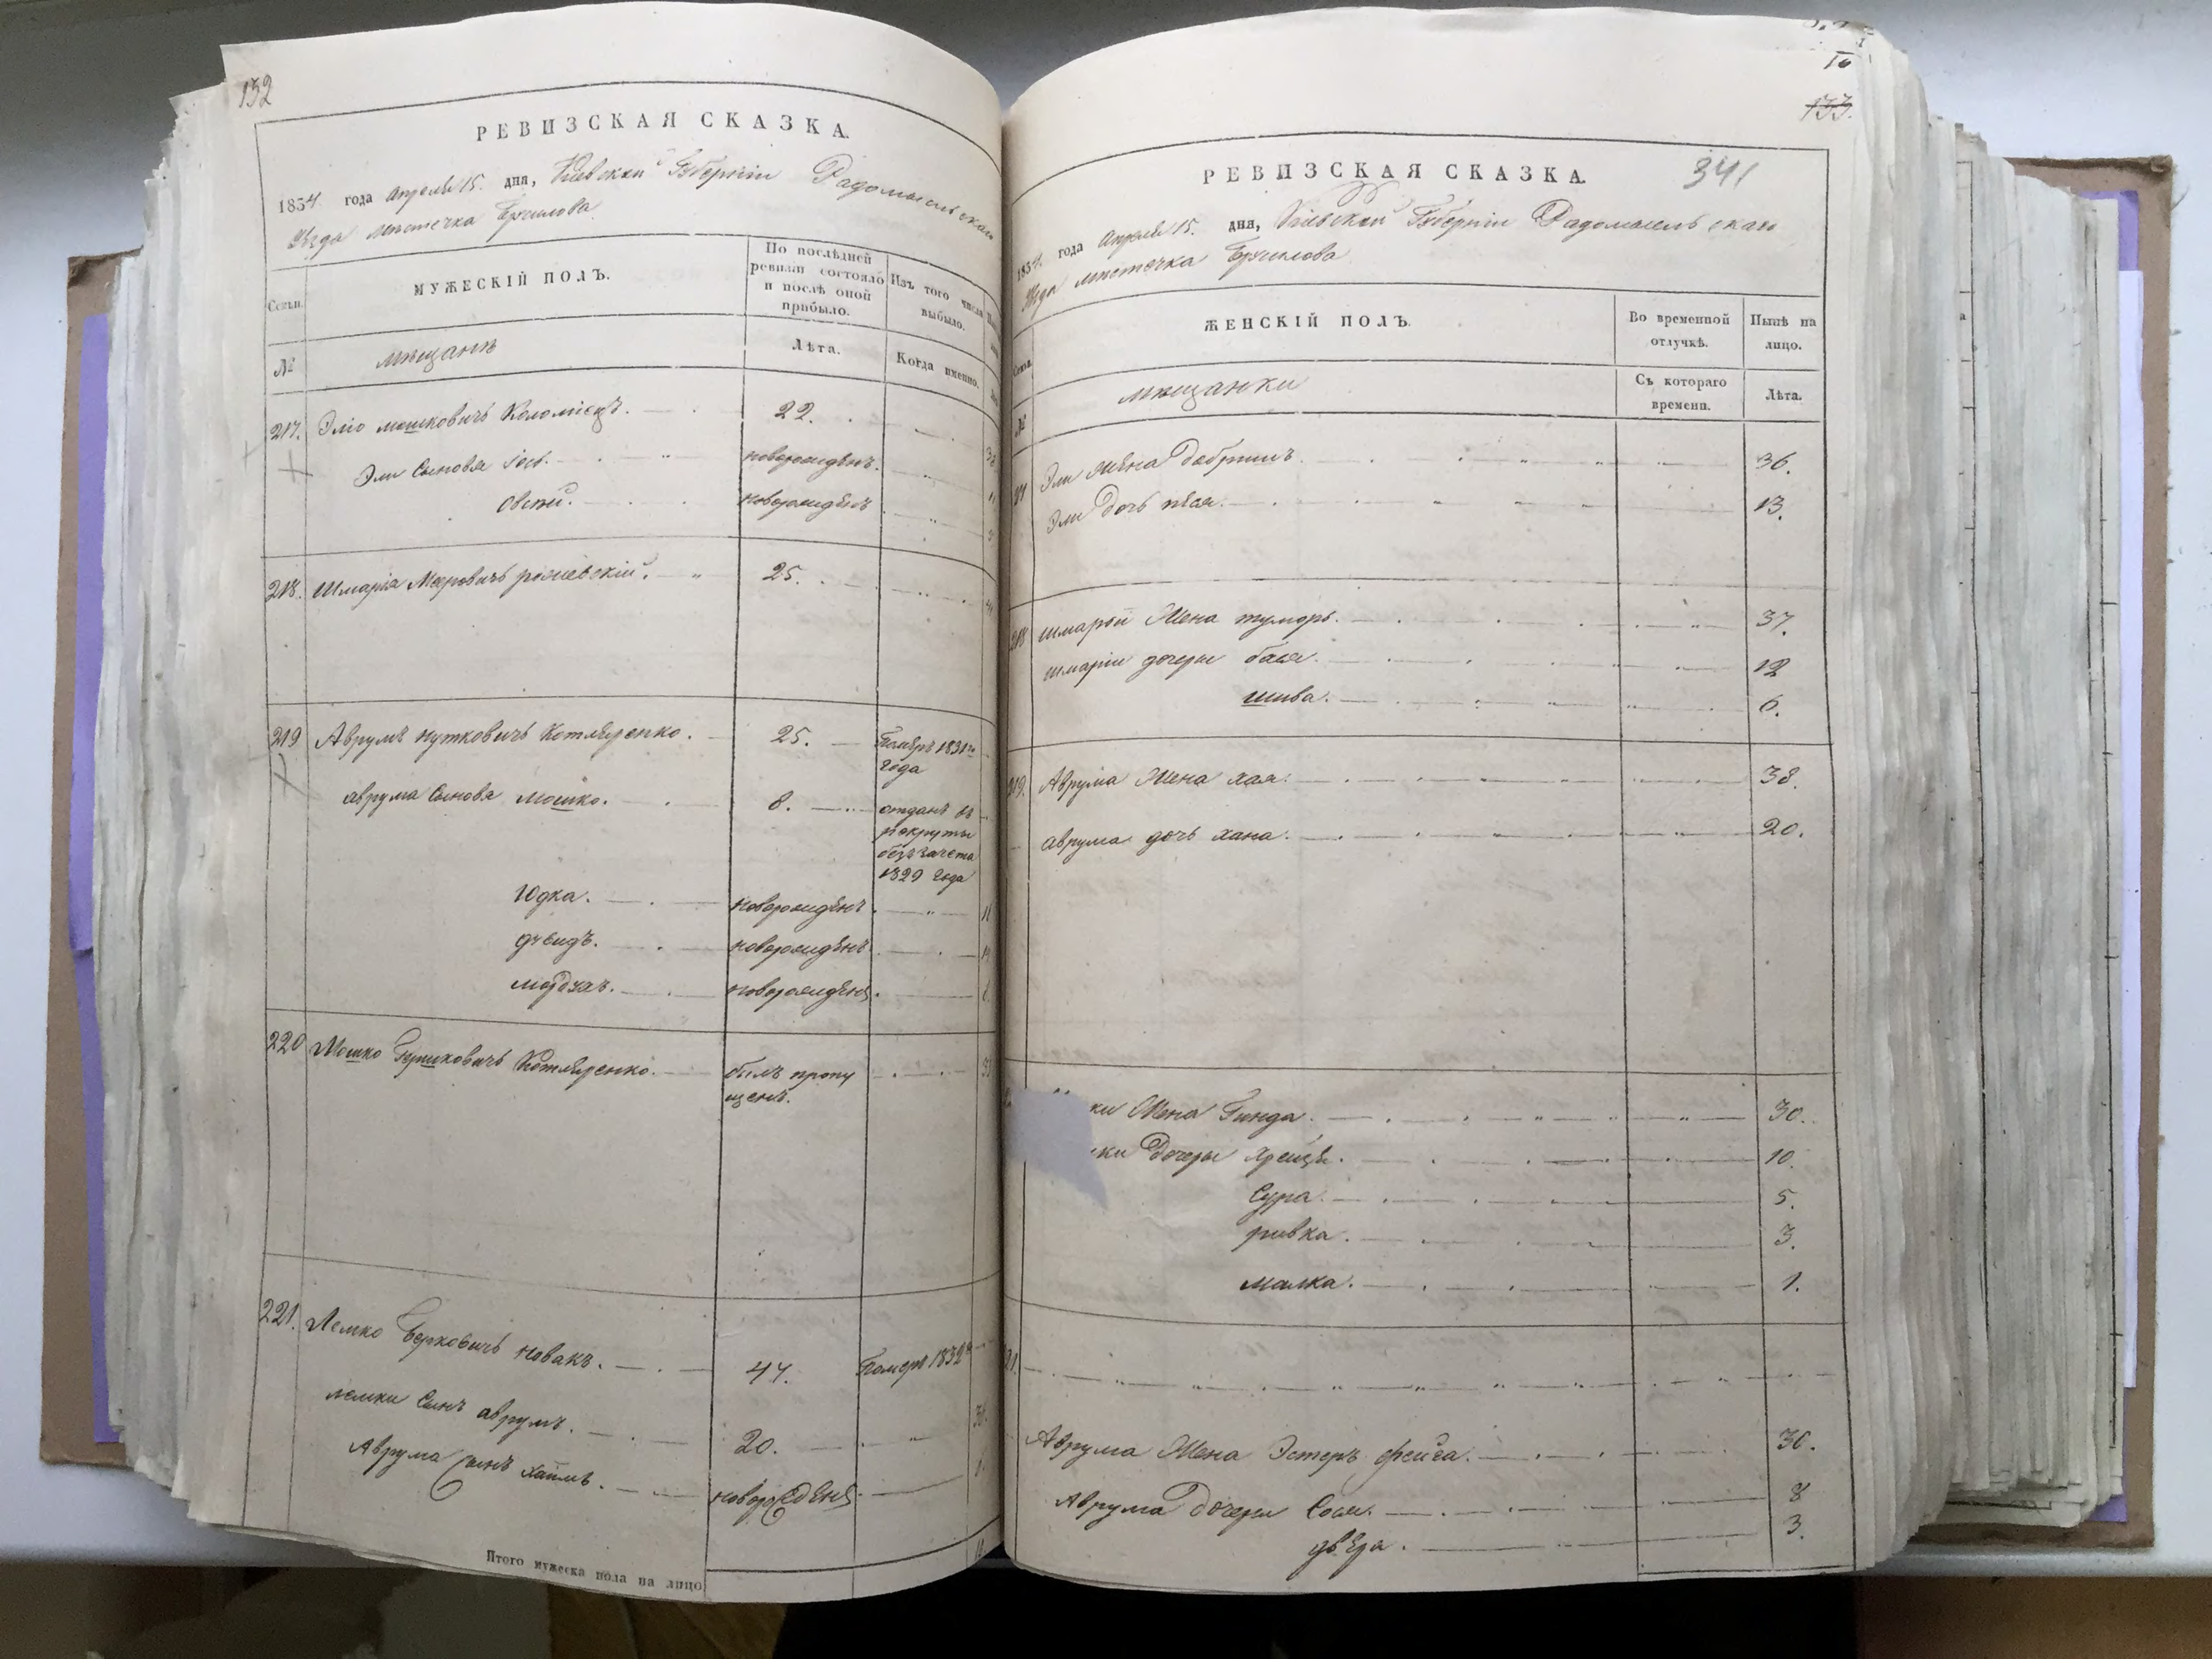 132
РЕВИЗСКАЯ СКАЗКА.
1834 года Апреля 15. дня, Киевской Губернии Радомысльскаго
Уезда местечка Брусилова
Семьи. МУЖЕСКІЙ ПОЛЪ. По послѣдней ревизіи состояло и послѣ оной прибыло. Изъ того числа выбыло.
№ мещане Лѣта. Когда именно.
217. Элю мошковичъ Коломіецъ. 22.
Эли Сыновья Іось. новорожденъ.
Овсей. новорожденъ
218. Шмарія Мееровичъ рожевскій. 25.
219 Аврумъ нутковичъ Котляренко. 25. Померъ 1831го года
аврума Сыновья Мошко. 8. отданъ въ рекруты безъ зачета 1829 года
Юдка. новорожденъ 18
дувидъ. новорожденъ
мордухъ. новорожденъ.
220 Мошко Гершковичъ Котляренко. былъ пропущенъ.
221. Лемко Берковичъ Новакъ. 44. Померъ 1832
лемки Сынъ аврумъ. 20.
Аврума Сынъ хаимъ. новорожденъ
Итого мужеска пола на лицо
133.
РЕВИЗСКАЯ СКАЗКА. 341
1834 года Апреля 15. дня, Кіевской Губерніи Радомысльскаго
Уезда местечка Брусилова
ЖЕНСКІЙ ПОЛЪ. Во временной отлучкѣ. Нынѣ на лицо.
№ мещанки Съ котораго времени. Лѣта.
Эли Жена Добришъ. 36.
Эли Дочь песя. 13.
218 шмарии Жена тумеръ. 37.
шмаріи дочери бася. 12
шива. 6.
219. Аврума Жена хая. 38.
аврума дочь хана. 20.
ки Жена Гинда. 30.
ки Дочери 10.
Сура. 5.
ривка. 3.
малка. 1.
Аврума Жена Эстеръ фейга. 30.
Аврума Дочери Сося. 8
двера. 3.